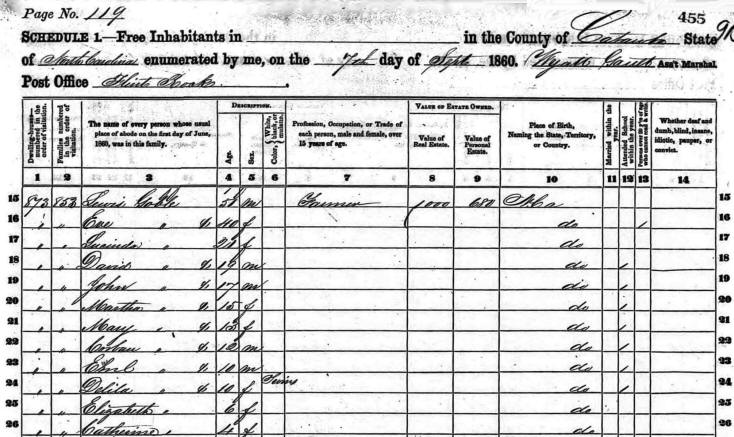 Page No. 119
455
91
SCHEDULE 1.—Free Inhabitants in in the County of Catawba State
of North Carolina enumerated by me, on the 7th day of Sept 1860. Wyatt Gaither Ass't Marshal.
Post Office Flints Rock
Dwelling-houses numbered in the order of visitation.
Families numbered in the order of visitation.
The name of every person whose usual place of abode on the first day of June, 1860, was in this family.
DESCRIPTION.
Age.
Sex.
Color, White, black, or mulatto.
Profession, Occupation, or Trade of each person, male and female, over 15 years of age.
VALUE OF ESTATE OWNED.
Value of Real Estate.
Value of Personal Estate.
Place of Birth, Naming the State, Territory, or Country.
Married within the year.
Attended School within the year.
Persons over 20 y'rs of age who cannot read & write.
Whether deaf and dumb, blind, insane, idiotic, pauper, or convict.
1 2 3 4 5 6 7 8 9 10 11 12 13 14
15 873 853 Lewis Goble 51 m Farmer 1000 680 N.Ca 15
16 " " Eve " " 40 f do / 16
17 " " Lucinda " " 21 f do 17
18 " " David " " 19 m do / 18
19 " " John " " 17 m do / 19
20 " " Martha " " 15 f do / 20
21 " " Mary " " 13 f do / 21
22 " " " " 12 m do / 22
23 " " " " 10 m do / 23
24 " " Delila " " 10 f Twins do / 24
25 " " Elizabeth " 6 f do 25
26 " " Catherine " 4 f do 26